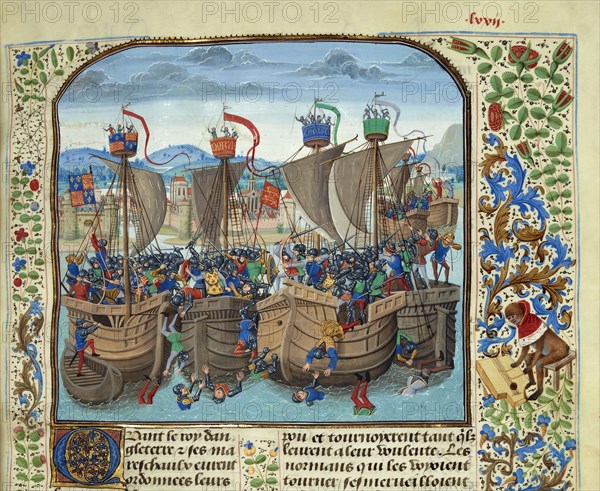 lxvij.
Quant le roy dan
gleterre & ses ma
reschaulx eurent
ordonnees leurs
pou et tournoyerent tant qlz
leurent a leur voulente. Les
normans qui les veoyent
tourner sesmerveilloient
PHOTO12